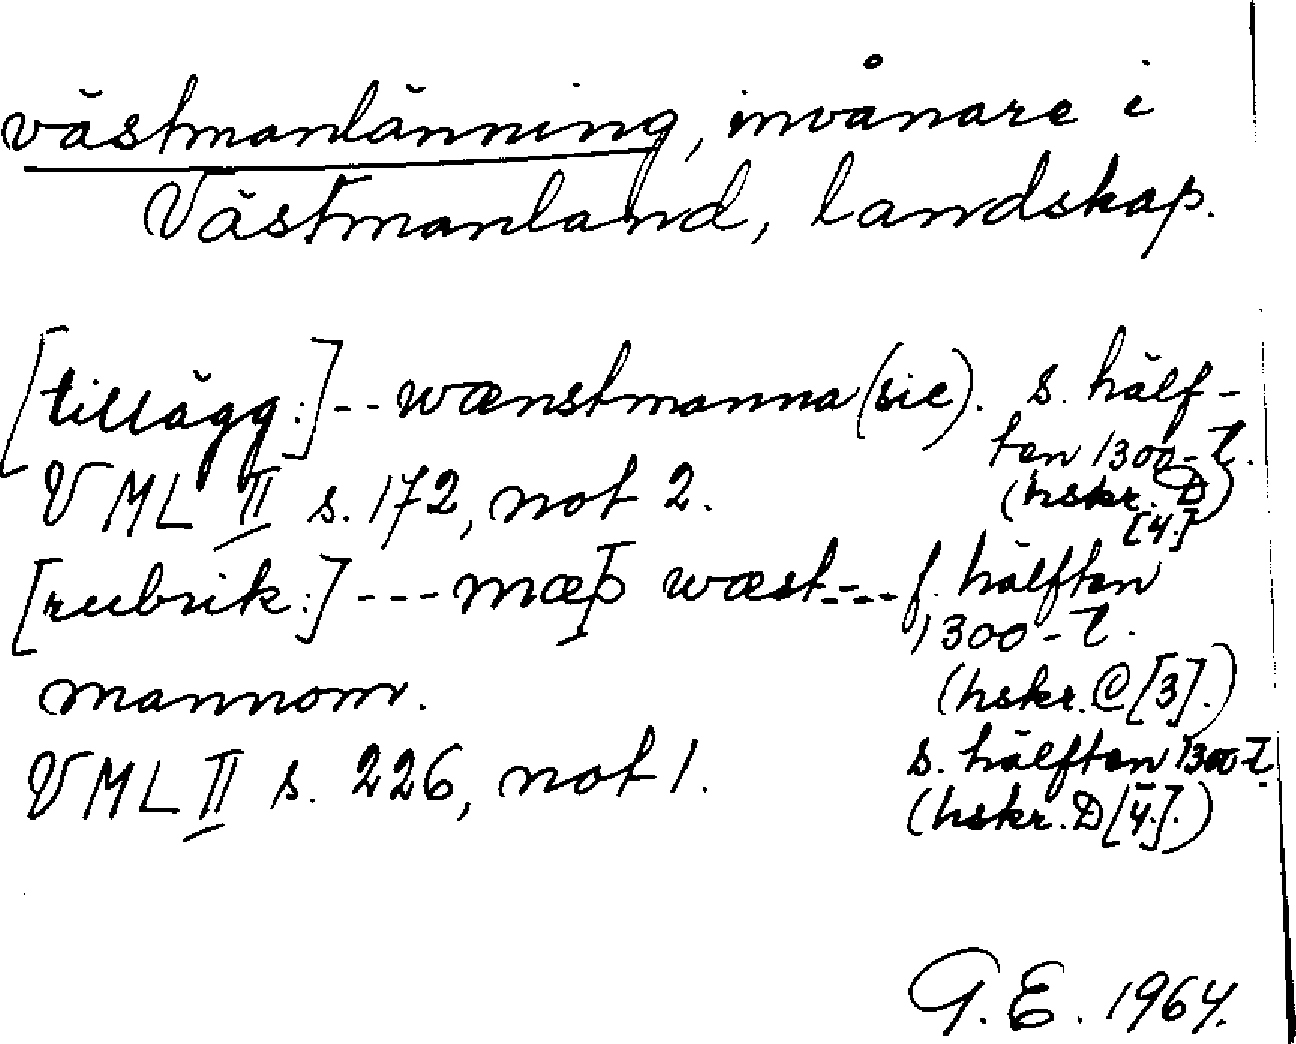 västmanlänning, invånare i
Västmanland, landskap.
[tillägg:] -- wænstmanna (sic). s. hälf-
ten 1300-t.
VML II s. 172, not 2. (hskr. D
[4].)
[rubrik:] --- mæþ wæst--- f. hälften
1300-t.
mannom. (hskr. C [3].)
VML II s. 226, not 1. s. hälften 1300-t.
(hskr. D [4].)
G.E. 1964.